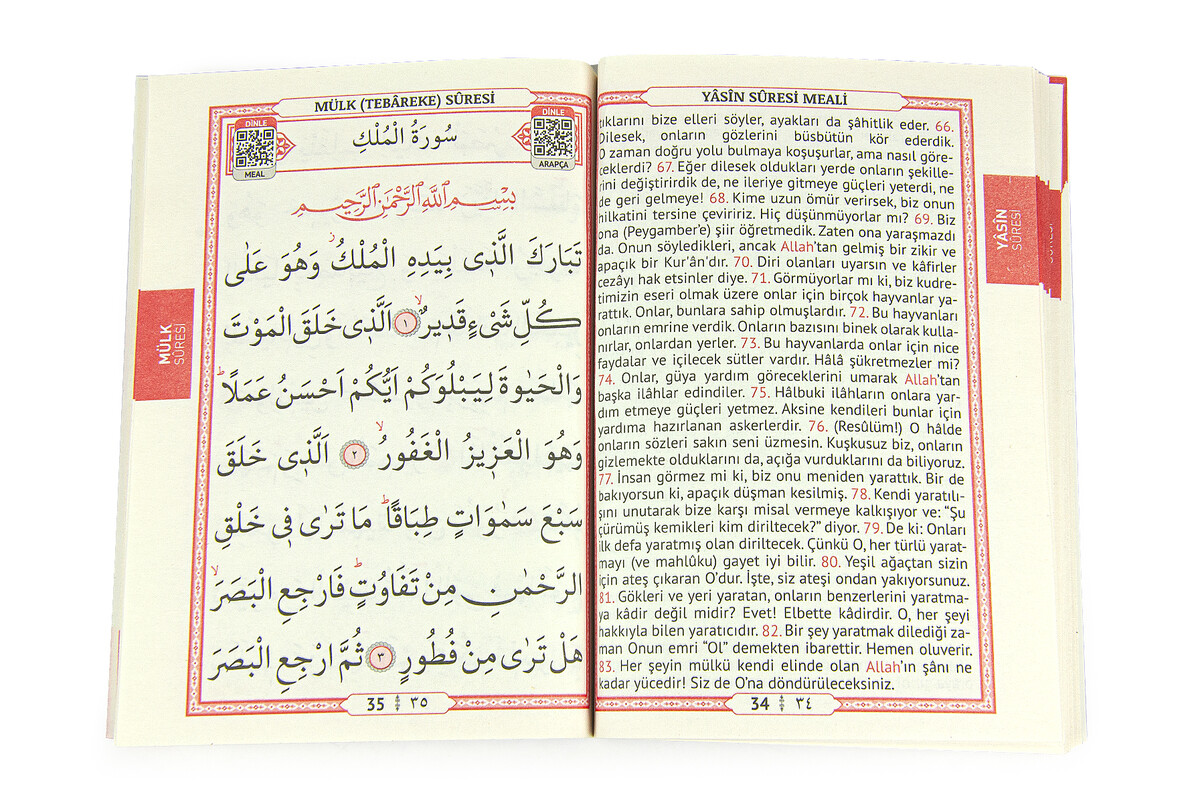 YÂSÎN SÛRESİ MEALİ
bize elleri söyler, ayakları da şâhitlik eder. 66.
Dilesek, onların gözlerini büsbütün kör ederdik.
O zaman doğru yolu bulmaya koşuşurlar, ama nasıl göre-
ceklerdi? 67. Eğer dilesek oldukları yerde onların şekille-
rini değiştirirdik de, ne ileriye gitmeye güçleri yeterdi, ne
de geri gelmeye! 68. Kime uzun ömür verirsek, biz onun
hilkatini tersine çeviririz. Hiç düşünmüyorlar mı? 69. Biz
ona (Peygamber'e) şiir öğretmedik. Zaten ona yaraşmazdı
da. Onun söyledikleri, ancak Allah'tan gelmiş bir zikir ve
apaçık bir Kur'ân'dır. 70. Diri olanları uyarsın ve kâfirler
cezâyı hak etsinler diye. 71. Görmüyorlar mı ki, biz kudre-
timizin eseri olmak üzere onlar için birçok hayvanlar ya-
rattık. Onlar, bunlara sahip olmuşlardır. 72. Bu hayvanları
onların emrine verdik. Onların bazısını binek olarak kulla-
nırlar, onlardan yerler. 73. Bu hayvanlarda onlar için nice
faydalar ve içilecek sütler vardır. Hâlâ şükretmezler mi?
74. Onlar, güya yardım göreceklerini umarak Allah'tan
başka ilâhlar edindiler. 75. Hâlbuki ilâhların onlara yar-
dım etmeye güçleri yetmez. Aksine kendileri bunlar için
yardıma hazırlanan askerlerdir. 76. (Resûlüm!) O hâlde
onların sözleri sakın seni üzmesin. Kuşkusuz biz, onların
gizlemekte olduklarını da, açığa vurduklarını da biliyoruz.
77. İnsan görmez mi ki, biz onu meniden yarattık. Bir de
bakıyorsun ki, apaçık düşman kesilmiş. 78. Kendi yaratılı-
şını unutarak bize karşı misal vermeye kalkışıyor ve: "Şu
çürümüş kemikleri kim diriltecek?" diyor. 79. De ki: Onları
ilk defa yaratmış olan diriltecek. Çünkü O, her türlü yarat-
mayı (ve mahlûku) gayet iyi bilir. 80. Yeşil ağaçtan sizin
için ateş çıkaran O'dur. İşte, siz ateşi ondan yakıyorsunuz.
81. Gökleri ve yeri yaratan, onların benzerlerini yaratma-
ya kâdir değil midir? Evet! Elbette kâdirdir. O, her şeyi
hakkıyla bilen yaratıcıdır. 82. Bir şey yaratmak dilediği za-
man Onun emri "Ol" demekten ibarettir. Hemen oluverir.
83. Her şeyin mülkü kendi elinde olan Allah'ın şânı ne
kadar yücedir! Siz de O'na döndürüleceksiniz.
34 ٣٤
YÂSÎN
SÛRESİ
MÜLK (TEBÂREKE) SÛRESİ
DİNLE
MEAL
سُورَةُ الْمُلْكِ
DİNLE
ARAPÇA
بِسْمِ اللّٰهِ الرَّحْمٰنِ الرَّحٖيمِ
تَبَارَكَ الَّذٖى بِيَدِهِ الْمُلْكُ وَهُوَ عَلٰى
كُلِّ شَىْءٍ قَدٖيرٌۙ ﴿١﴾ اَلَّذٖى خَلَقَ الْمَوْتَ
وَالْحَيٰوةَ لِيَبْلُوَكُمْ اَيُّكُمْ اَحْسَنُ عَمَلًاؕ
وَهُوَ الْعَزٖيزُ الْغَفُورُۙ ﴿٢﴾ اَلَّذٖى خَلَقَ
سَبْعَ سَمٰوَاتٍ طِبَاقًاؕ مَا تَرٰى فٖى خَلْقِ
الرَّحْمٰنِ مِنْ تَفَاوُتٍؕ فَارْجِعِ الْبَصَرَۙ
هَلْ تَرٰى مِنْ فُطُورٍ ﴿٣﴾ ثُمَّ ارْجِعِ الْبَصَرَ
35 ٣٥
MÜLK
SÛRESİ